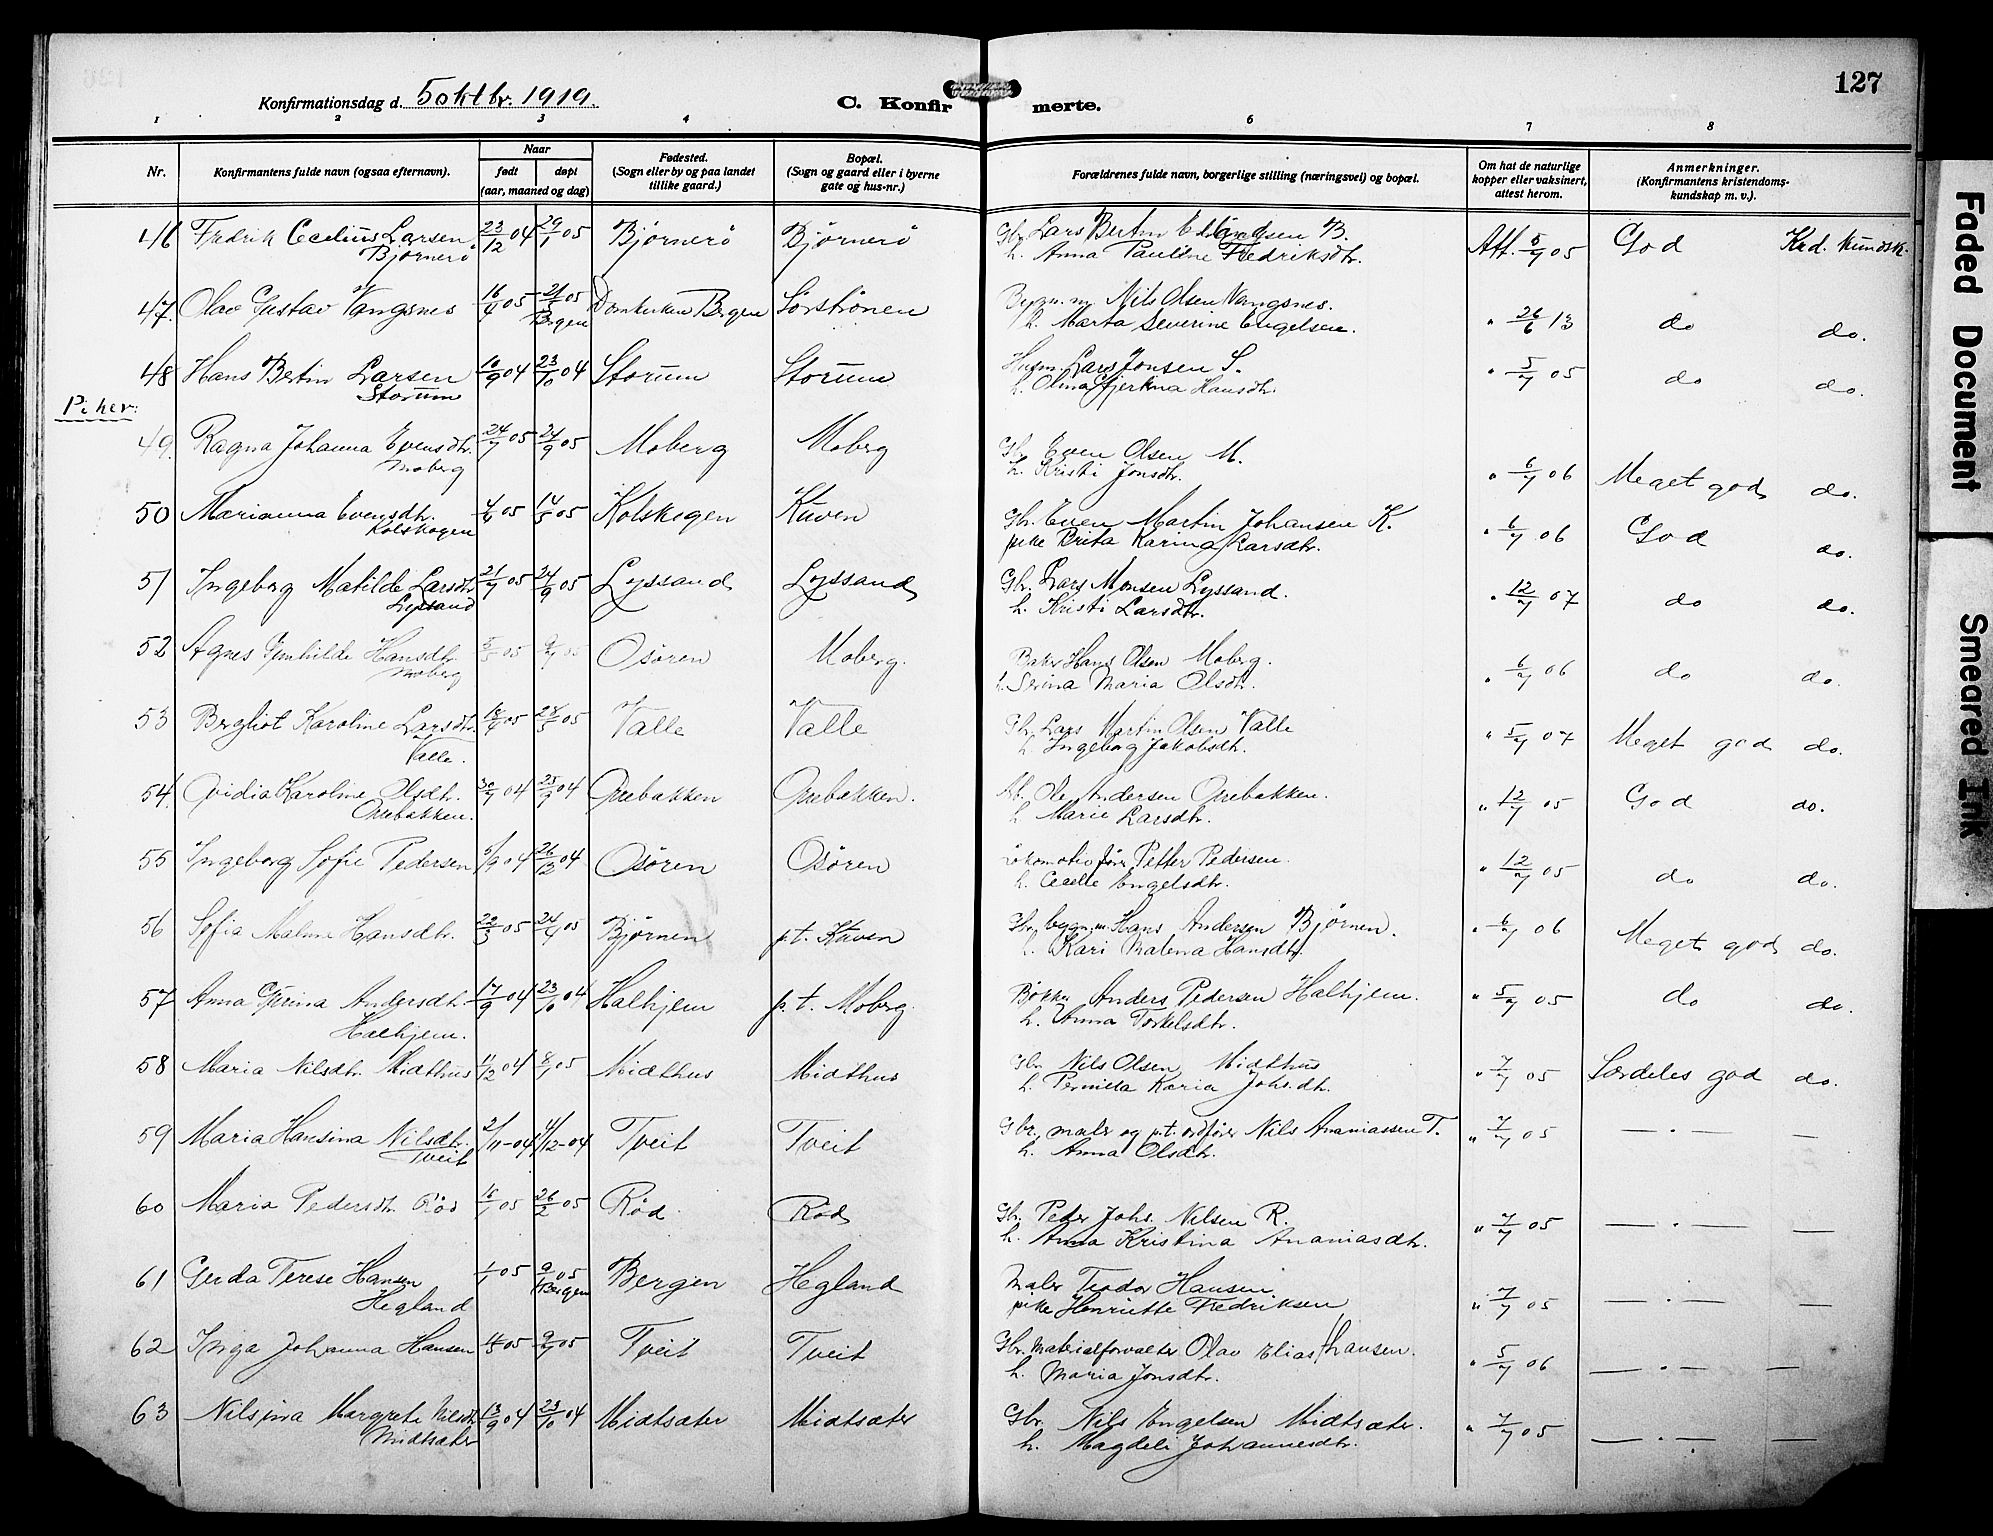 127
Konfirmationsdag d. 5 oktbr. 1919.
C. Konfirmerte.
1 2 3 4 6 7 8
Nr. Konfirmantens fulde navn (ogsaa efternavn). Naar født døpt (aar, maaned og dag) Fødested. (Sogn eller by og paa landet tillike gaard.) Bopæl. (Sogn og gaard eller i byerne gate og hus-nr.) Forældrenes fulde navn, borgerlige stilling (næringsvei) og bopæl. Om hat de naturlige kopper eller vaksinert, attest herom. Anmerkninger. (Konfirmantens kristendomskundskap m. v.).
46 Fredrik Cecelius Larsen 23/12 04 29/1 05 Bjørnerö Bjørnerö Gbr. Lars Bertin B. Att. 5/7 05 God Krd. kundsk.
Bjørnerö h. Anna Pauline Fredriksdtr.
47. Olav Gustav Vangsnes 16/4 05 21/5 05 Domkirken Bergen Sörströnen Bygn. m. Nils Olsen Vangsnes. " 26/6 13 do do.
Bergen h. Marta Severine Engelsen.
48 Hans Bertin Larsen 10/9 04 23/10 04 Storum Storum Husm. Lars Jonsen S. " 5/7 05 do do.
Storum h. Olina Gjertina Hansdtr.
Piker:
49. Ragna Johanna Evensdtr. 24/7 05 24/9 05 Moberg Moberg Gbr. Even Olsen M. " 6/7 06 Meget god do.
Moberg h. Kristi Jonsdtr.
50 Marianna Evensdtr. 4/6 05 14/5 05 Kolskogen Kuven Gbr. Even Martin Johansen K. " 6/7 06 God do.
Kolskogen pike Brita Karina Larsdtr.
51 Ingeborg Matilde Larsdtr. 21/7 05 24/9 05 Lyssand Lyssand Gbr. Lars Monsen Lyssand. " 12/7 07 do do.
Lyssand h. Kristi Larsdtr.
52 Agnes Gunhilde Hansdtr. 05 9/7 05 Osøren Moberg. Baker Hans Olsen Moberg. " 6/7 06 do do.
Moberg h. Serina Maria Olsdtr.
53 Bergliot Karoline Larsdtr. 18/4 05 28/5 05 Valle Valle Gbr. Lars Martin Olsen Valle " 5/7 07 Meget god do.
Valle. h. Ingeborg Jakobsdtr.
54. Ovidia Karoline Olsdtr. 30/7 04 25/9 04 Grebakken Grebakken. Ole Andersen Grebakken. " 12/7 05 God do.
Grebakken. h. Marie Larsdtr.
55 Ingeborg Sofie Pedersen 5/9 04 26/12 04 Osøren Osøren Lokomotivfører Petter Pedersen. " 12/7 05 do do.
h. Cecelie Engelsdtr.
56 Sofia Malene Hansdtr. 22/3 05 24/4 05 Bjørnen p.t. Kuven Gbr. bygn. m. Hans Andersen Bjørnen. " 6/7 06 Meget god do.
h. Kari Malena Hansdtr.
57 Anna Gurina Andersdtr. 17/9 04 23/10 04 Halhjem p.t. Moberg. Bøkker Anders Pedersen Halhjem. " 5/7 05 do do.
Halhjem. h. Anna Torkelsdtr.
58 Maria Nilsdtr. Midthus 11/12 04 8/1 05 Midthus Midthus Gbr. Nils Olsen Midthus " 7/7 05 Særdeles god do.
h. Pernilla Karia Johs.dtr.
59 Maria Hansina Nilsdtr. 2/11-04 4/12-04 Tveit Tveit Gbr. maler og p.t. ordfører Nils Ananiassen T. " 7/7 05 — . — —
Tveit h. Anna Olsdtr.
60 Maria Pedersdtr. Röd 16/1 05 26/2 05 Röd Röd Gbr. Peder Johs. Nilsen R. " 7/7 05 — . — —
h. Anna Kristina Ananiasdtr.
61 Gerda Terese Hansen 1/1 05 9/4 05 Bergen Hegland Maler Teodor Hansen " 7/7 05 — . — —
Hegland Bergen pike Henriette Fredriksen
62 Inga Johanna Hansen 05 9/7 05 Tveit Tveit Gbr. Materialforvalter Olav Elias Hansen. " 5/7 06 — . — —
h. Maria Jonsdtr.
63 Nilsina Margrete Nilsdtr. 13/9 04 23/10 04 Midtsæter Midtsæter Gbr. Nils Engelsen Midtsæter. " 7/7 05 — . — —
Midtsæter h. Magdeli Johannesdtr.
Faded Document
Smeared Ink